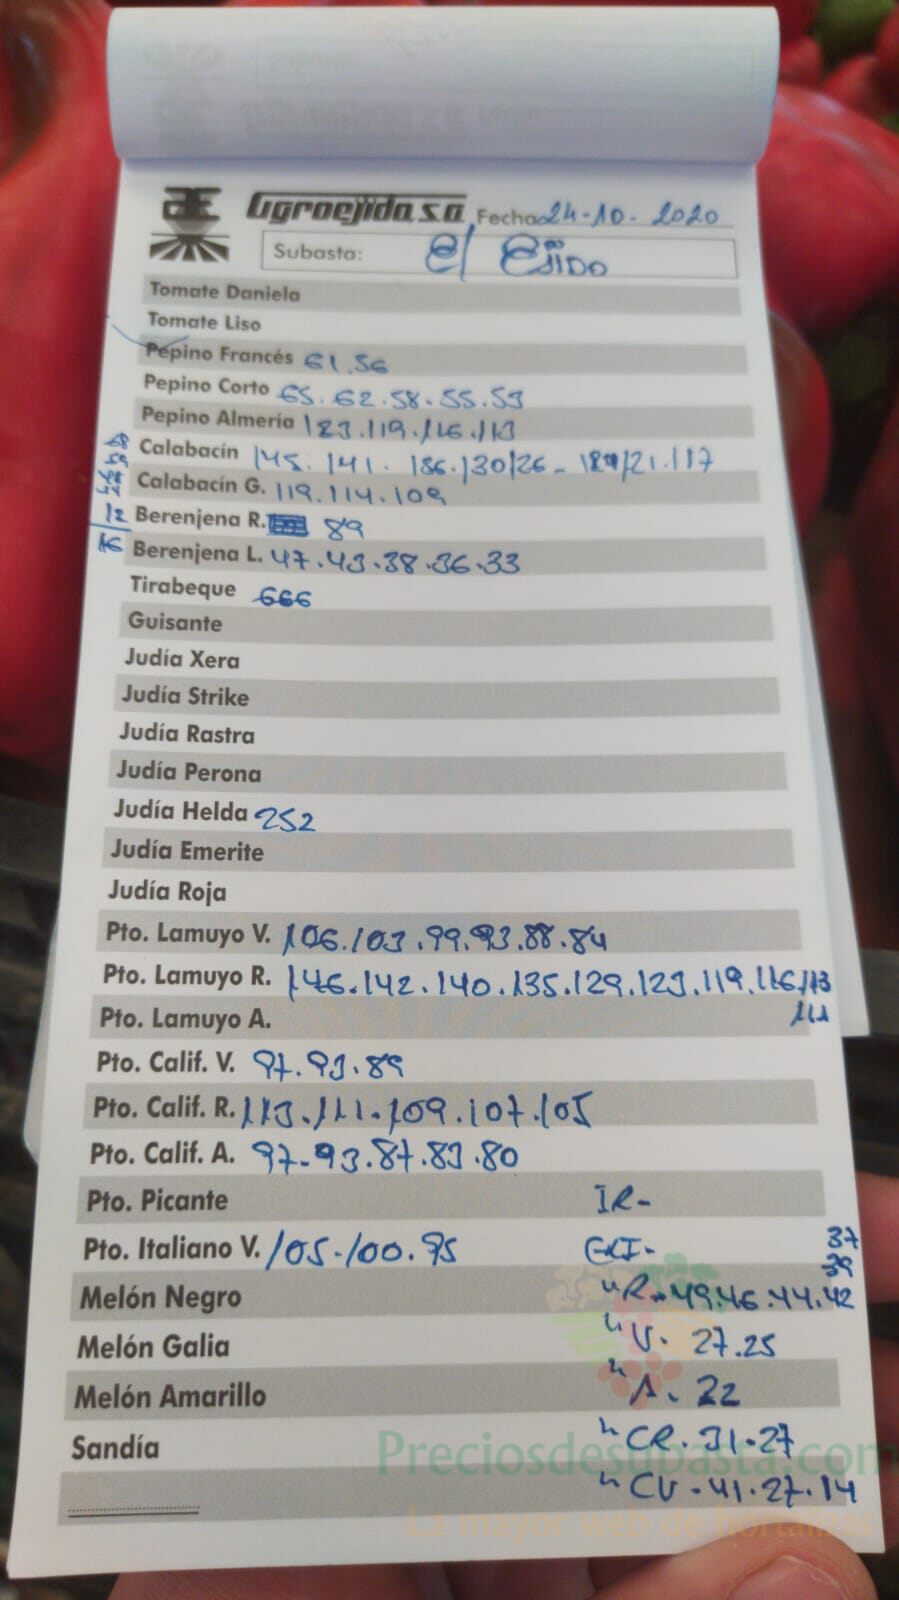 Agroejido s.a. Fecha 24-10-2020
Subasta: El EJIDO
Tomate Daniela
Tomate Liso
Pepino Francés 61.56
Pepino Corto 65.62.58.55.53
Pepino Almería 123.119.116.113
68 Calabacín 145.141.136.130/26-124/21.117
59
Calabacín G. 119.114.109
12 Berenjena R. 89
16 Berenjena L. 47.43.38.36.33
Tirabeque 666
Guisante
Judía Xera
Judía Strike
Judía Rastra
Judía Perona
Judía Helda 252
Judía Emerite
Judía Roja
Pto. Lamuyo V. 106.103.99.93.88.84
Pto. Lamuyo R. 146.142.140.135.129.123.119.116.113
Pto. Lamuyo A. 111
Pto. Calif. V. 97.93.89
Pto. Calif. R. 113.111.109.107.105
Pto. Calif. A. 97-93.87.83.80
Pto. Picante IR-
Pto. Italiano V. 105-100.95 37
39
Melón Negro " R-49.46.44.42
Melón Galia " V. 27.25
Melón Amarillo " A. 22
Sandía " CR.31-27
" CV-41.27.14
Preciosdesubasta.com
La mayor web de hortalizas